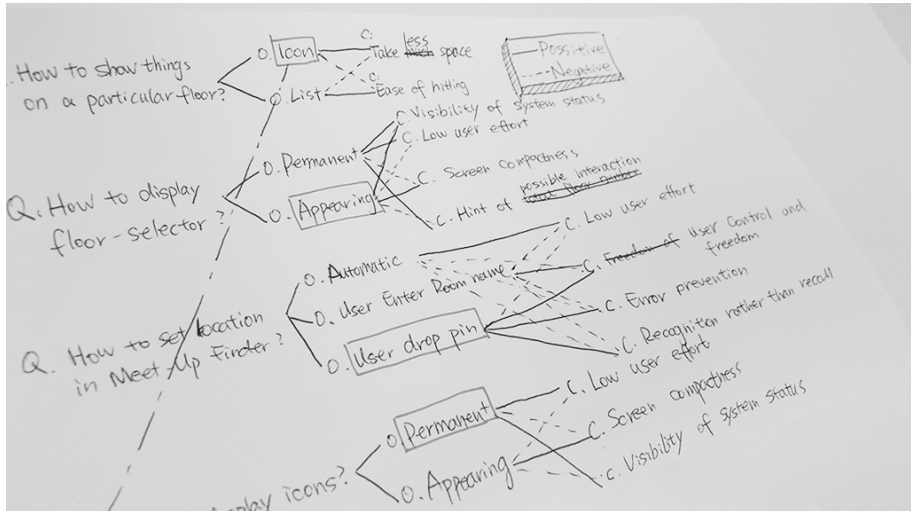 . How to show things
on a particular floor?
O. Icon
O. List
C:
Take much less space
C:
Ease of hitting
Possitive
Negative
Q. How to display
floor-selector?
O. Permanent
O. Appearing
C. Visibility of system status
C. Low user effort
C. Screen compactness
C. Hint of possible interaction
Q. How to set location
in Meet-Up Finder?
O. Automatic
O. User Enter Room name
O. User drop pin
C. Low user effort
C. Freedom of user control and
freedom
C. Error prevention
C. Recognition rather than recall
play icons?
O. Permanent
O. Appearing
C. Low user effort
C. Screen compactness
C. Visibility of system status